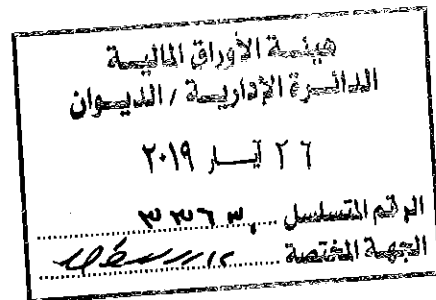 هيئة الأوراق المالية
الدائرة الإدارية / الديوان
٢٦ آيار ٢٠١٩
الرقم المتسلسل
الجهة المختصة